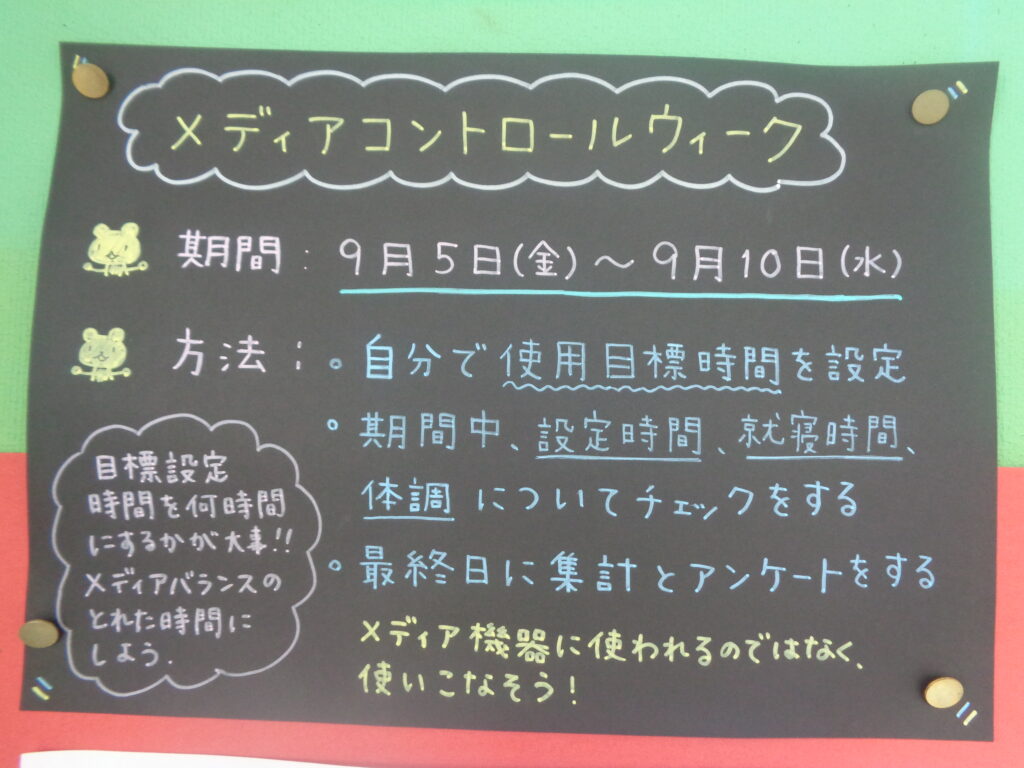 メディアコントロールウィーク
期間：9月5日(金)～9月10日(水)
方法：。自分で使用目標時間を設定
。期間中、設定時間、就寝時間、
体調についてチェックをする
。最終日に集計とアンケートをする
メディア機器に使われるのではなく、
使いこなそう！
目標設定
時間を何時間
にするかが大事!!
メディアバランスの
とれた時間に
しよう.